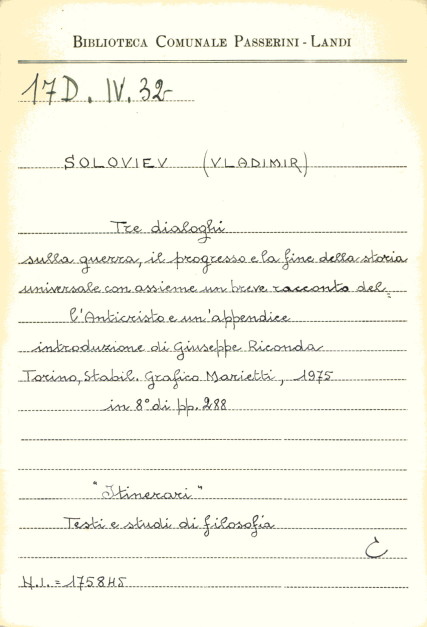 BIBLIOTECA COMUNALE PASSERINI - LANDI
17 D. IV. 32-
SOLOVIEV (VLADIMIR)
Tre dialoghi
sulla guerra, il progresso e la fine della storia
universale con assieme un breve racconto del=
l'Anticristo e un'appendice
introduzione di Giuseppe Riconda
Torino, Stabil. Grafico Marietti, 1975
in 8° di pp. 288
"Itinerari"
Testi e studi di filosofia
N.I. = 175845